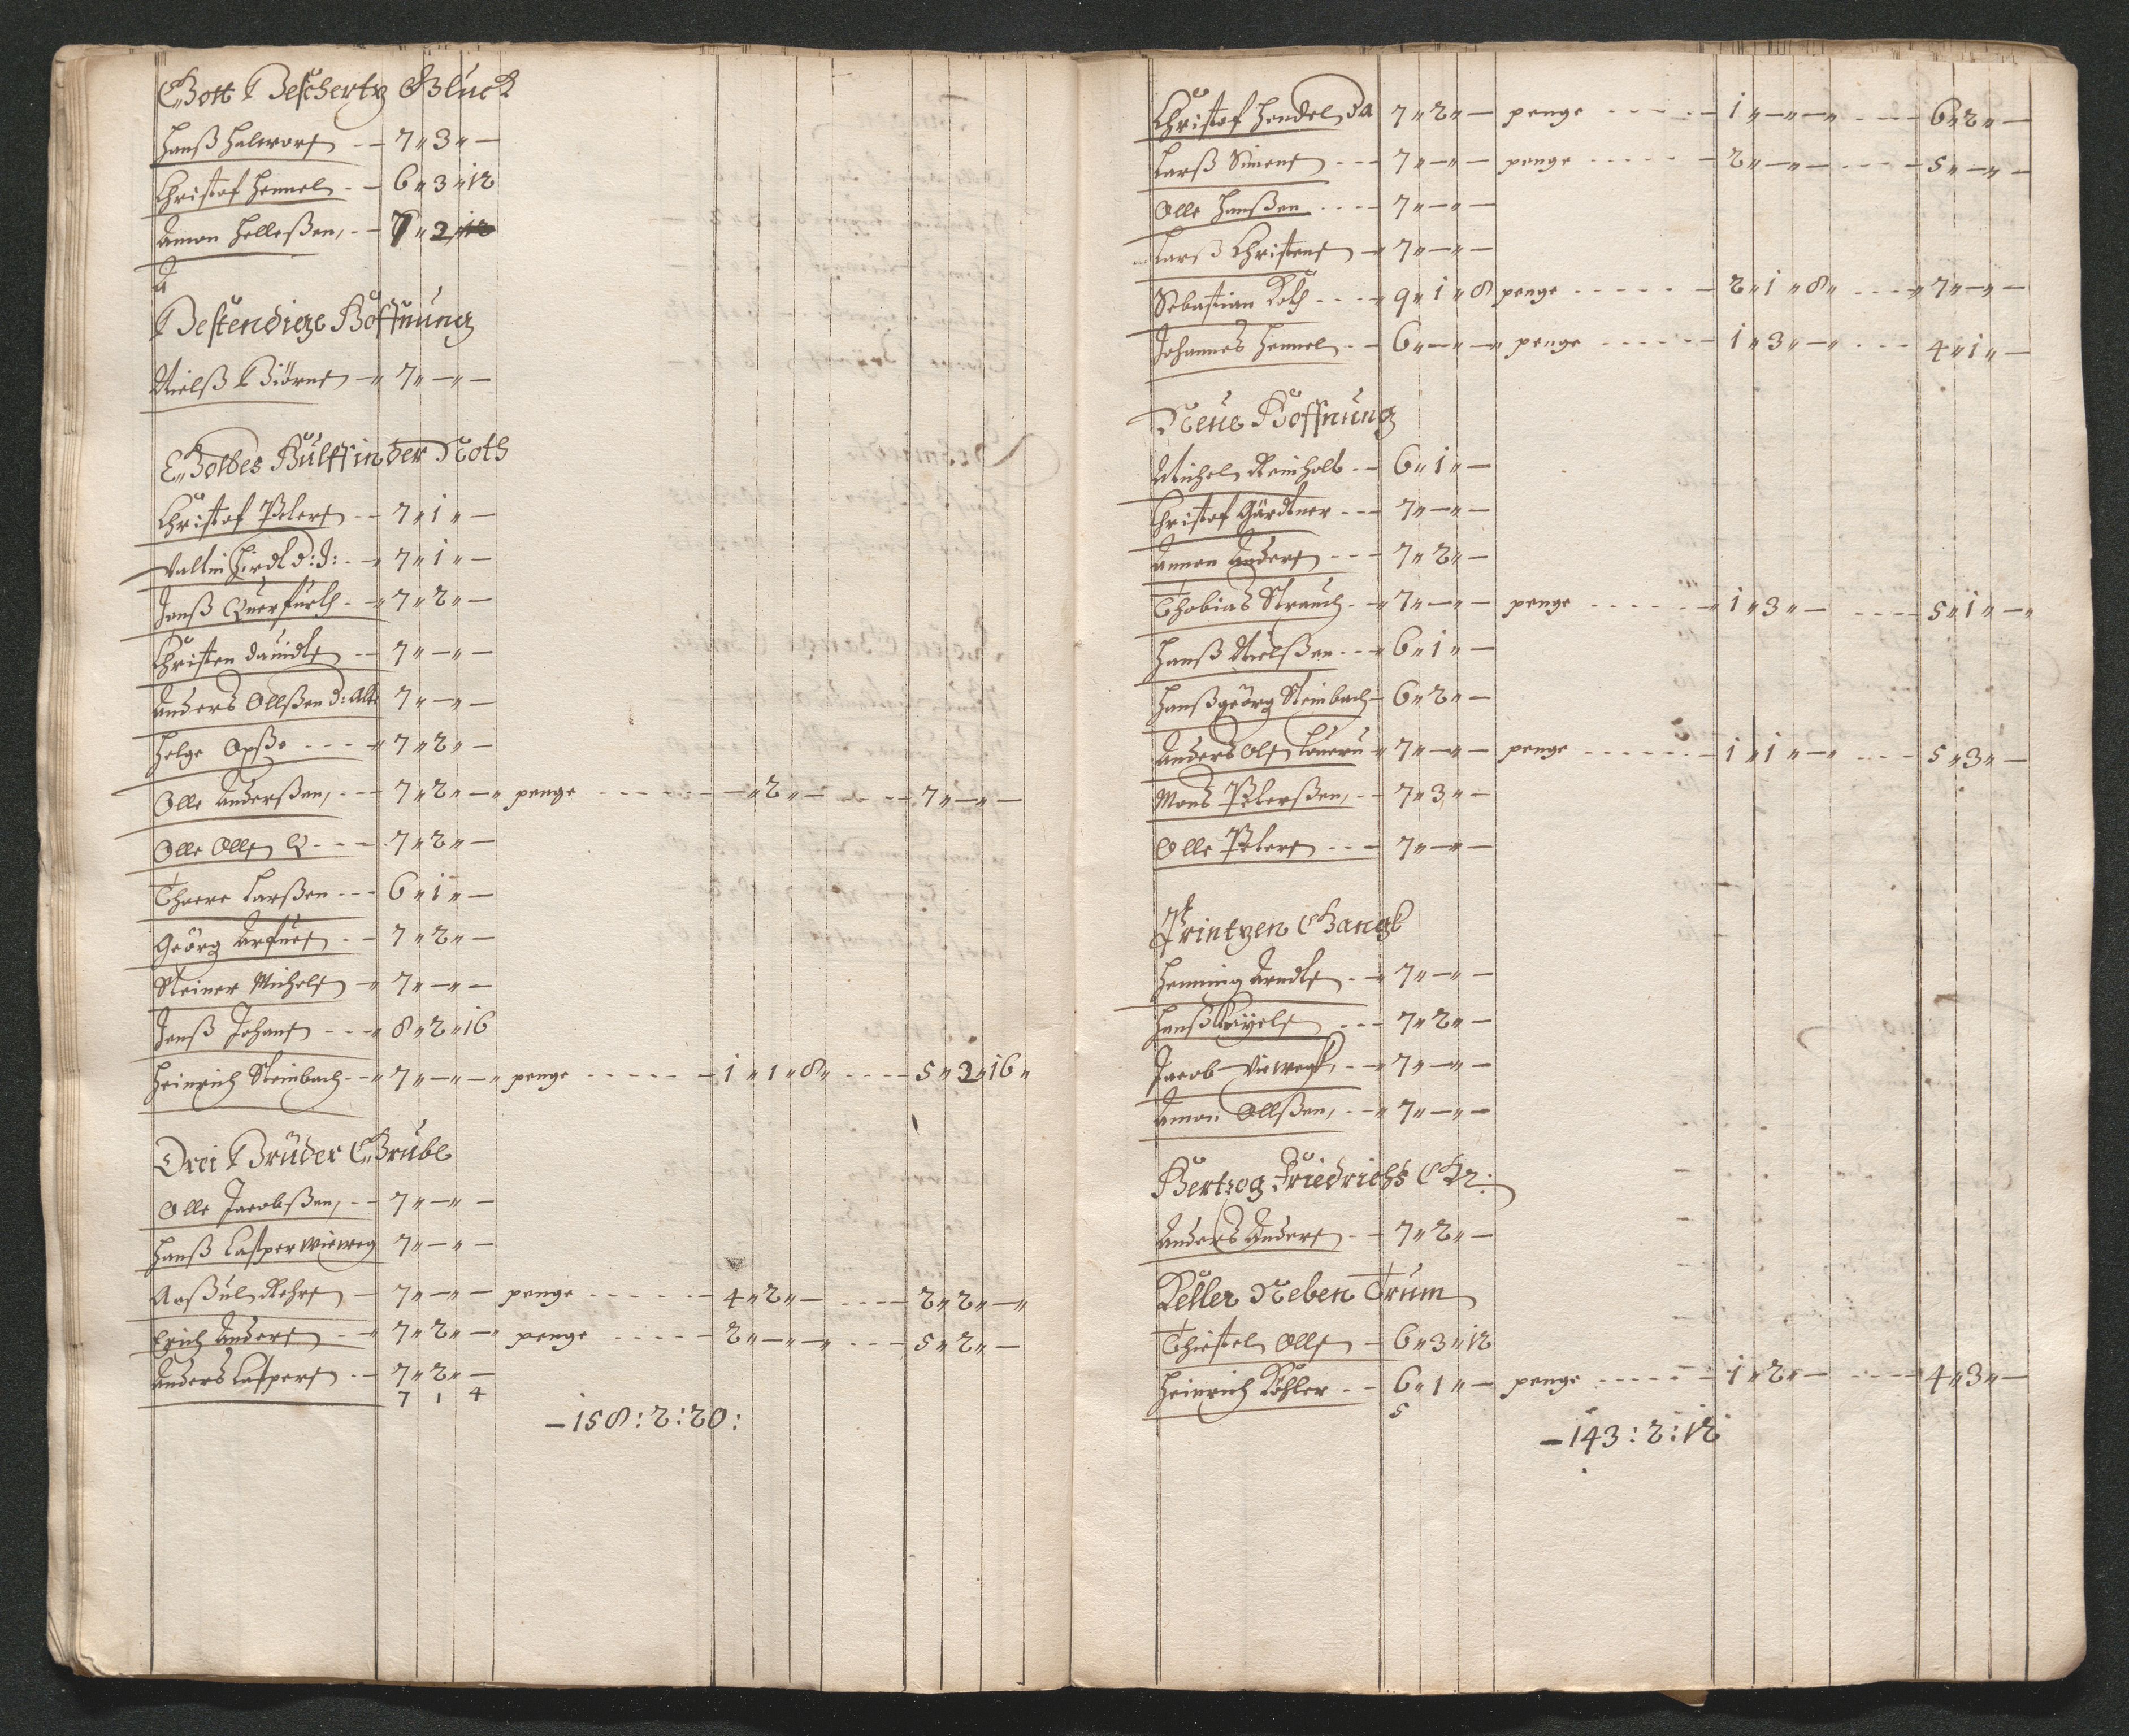 Gott Beschertz Glück
Hanß Halwors - - 7 " 3 " —
Christof Hennel - - 6 " 3 " 12
Amon Helleßen, - - 7 " 2 "
Bestendige Hoffnung
Nielß Biörns - " 7 " — " —
Gottes Hülff in der Noth
Christof Peters - - 7 " 1 " —
Valtin Hirdt d: J: - - 7 " 1 " —
Jenß Querfurth - - " 7 " 2 " —
Christen Davidts - - 7 " — " —
Anders Ollßen d: Alte 7 " — " —
Helge Opße - - - " 7 " 2 " —
Olle Anderßen, - - 7 " 2 " — " penge - - - - - — " 2 " — - - - 7 " — " —
Olle Olls Q - - - 7 " 2 " —
Thore Larßen - - - 6 " 1 " —
Geörg Arfues - - 7 " 2 " —
Steiner Michels - " 7 " — " —
Jenß Johans - - - " 8 " 2 " 16
Heinrich Steinbach - - " 7 " — " — " penge - - - - - 1 " 1 " 8 " - - - - 5 " 2 " 16 "
Drei Brüder Grube
Olle Jacobßen, - - 7 " — " —
Hanß Casper Vieweg 7 " — " —
Aaßul Rehrs - 7 " — " — penge - - - - - 4 " 2 " — - - - - 2 " 2 " — "
Erich Anders - - " 7 " 2 " — " penge - - - - - 2 " — " — " - - - 5 " 2 " —
Anders Caspers - - 7 " 2 " —
7 1 4
— 158 : 2 : 20 :
Christof Hendel da 7 " 2 " — penge - - - - - 1 " — " — " - - - - 6 " 2 " —
Larß Simens - - - 7 " — " — penge - - - - - 2 " — " — - - - - 5 " — " —
Olle Hanßen - - - - 7 " — " —
Larß Christens - " 7 " — " —
Sebastian Koth - - - " 9 " 1 " 8 penge - - - - - 2 " 1 " 8 " - - - " 7 " — " —
Johannes Hennel - - 6 " — " — " penge - - - - - 1 " 3 " — " - - - 4 " 1 " —
Neue Hoffnung
Michel Reinholt - - 6 " 1 " —
Christof Gärdtner - - - 7 " — " —
Amon Anders - - - 7 " 2 " —
Thobias Strauch - - " 7 " — " — penge - - - - - " 1 " 3 " — - - - - 5 " 1 " — "
Hanß Nielßen - - " 6 " 1 " —
Hanßgeörg Steinbach - 6 " 2 " —
Anders Ols " 7 " — " — penge - - - - - 1 " 1 " — " - - - 5 " 3 " —
Mons Peterßen, - - 7 " 3 " —
Olle Peters - - - 7 " — " —
Printzen Gangk
Henning Arndts - - " 7 " — " —
Hanß - - - 7 " 2 " —
Jacob Viewegk, - - " 7 " — " —
Amon Ollßen, - - " 7 " — " —
Hertzog Friedrichs Gr:
Anders Anders - - 7 " 2 " —
Keller Neben Trum
Thistel Olls - 6 " 3 " 12
Heinrich Köhler - - 6 " 1 " — penge - - - - - 1 " 2 " — - - - 4 " 3 " —
5
— 143 : 2 : 12